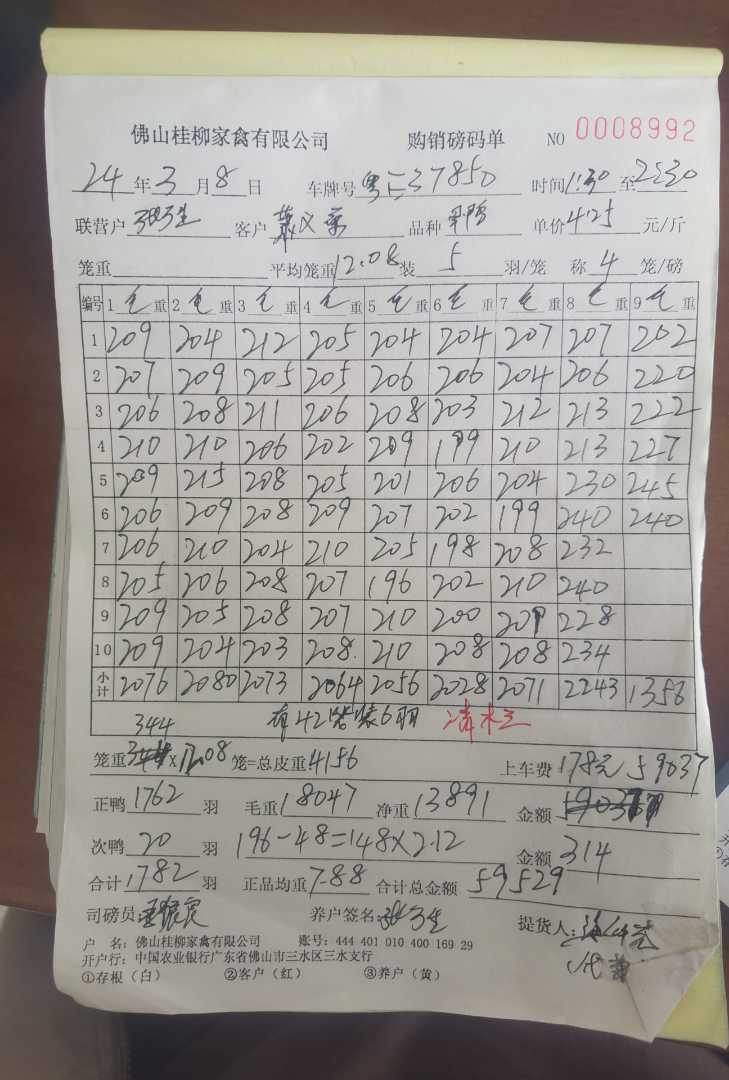 佛山桂柳家禽有限公司 购销磅码单 NO 0008992
24年3月8日 车牌号 粤 37850 时间1:30至2:30
联营户 张生 客户 品种 单价4.25元/斤
笼重 平均笼重12.08装5羽/笼 称4笼/磅
编号 1毛重 2毛重 3毛重 4毛重 5毛重 6毛重 7毛重 8毛重 9毛重
1 209 204 212 205 204 204 207 207 202
2 207 209 205 205 206 206 204 206 220
3 206 208 211 206 208 203 212 213 222
4 210 210 206 202 209 199 210 213 227
5 209 215 208 205 201 206 204 230 245
6 206 209 208 209 207 202 199 240 240
7 206 210 204 210 205 198 208 232
8 205 206 208 207 196 202 210 240
9 209 205 208 207 210 200 209 228
10 209 204 203 208 210 208 208 234
小计 2076 2080 2073 2064 2056 2028 2071 2243 1358
344 有42笼装6羽
笼重 ×12.08笼=总皮重4156 上车费178元 59037
正鸭1762羽 毛重18047 净重13891 金额
次鸭20羽 196-48=148×2.12 金额314
合计1782羽 正品均重7.88 合计总金额59529
司磅员 养户签名 张生 提货人:
代
户 名:佛山桂柳家禽有限公司 账号:444 401 010 400 169 29
开户行:中国农业银行广东省佛山市三水区三水支行
①存根(白) ②客户(红) ③养户(黄)